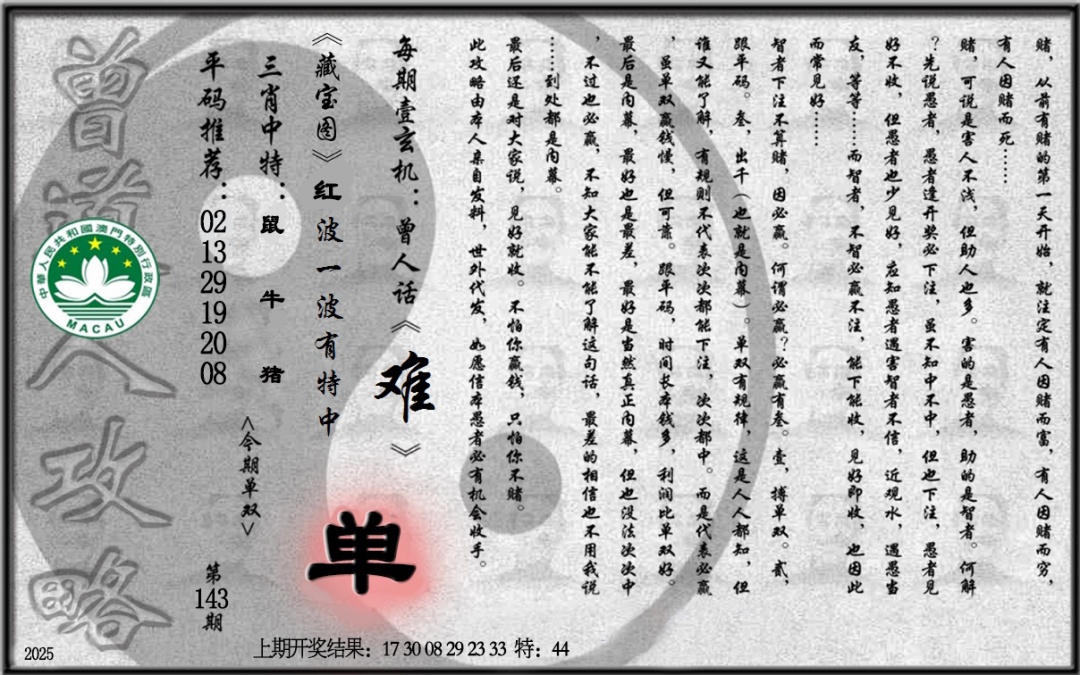 赌，从前有赌的第一天开始，就注定有人因赌而富，有人因赌而穷，
有人因赌而死……
赌，可说是害人不浅，但助人也多。害的是愚者，助的是智者。何解
？先说愚者，愚者逢开奖必下注，虽不知中不中，但也下注，愚者见
好不收，但愚者也少见好，应知愚者遇害智者不信，近观水，遇愚当
友，等等……而智者，不智必赢不注，能下能收，见好即收，也因此
而常见好……
智者下注不算赌，因必赢。何谓必赢？必赢有叁。壹，搏单双。贰，
跟平码。叁，出千（也就是内幕）。单双有规律，这是人人都知，但
谁又能了解，有规则不代表次次都能下注，次次都中。而是代表必赢
，虽单双赢钱慢，但可靠。跟平码，时间长本钱多，利润比单双好。
最后是内幕，最好也是最差，最好是当然真正内幕，但也没法次次中
，不过也必赢，不知大家能不能了解这句话，最差的相信也不用我说
……到处都是内幕。
最后还是对大家说，见好就收。不怕你赢钱，只怕你不赌。
此攻略由本人亲自发料，世外代发，如愿信本愚者必有机会收手。
每期壹玄机：曾人话《难》
《藏宝图》红波一波有特中
单
三肖中特：鼠 牛 猪
<今期单双>
平码推荐：02 13 29 19 20 08
第143期
曾道人攻略
中華人民共和國澳門特別行政區
MACAU
2025
上期开奖结果：17 30 08 29 23 33 特：44